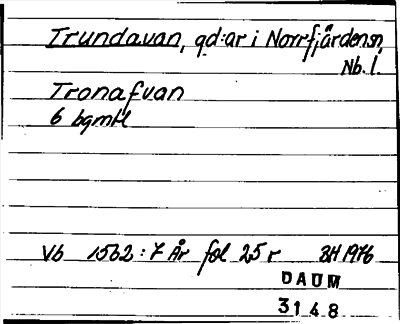 Trundavan, gd:ar i Norrfjärdensn,
Nb. l.
Tronafvan
6 bgmtl
Vb 1562:7 År fol 25 r BH 1976
DAUM
3148